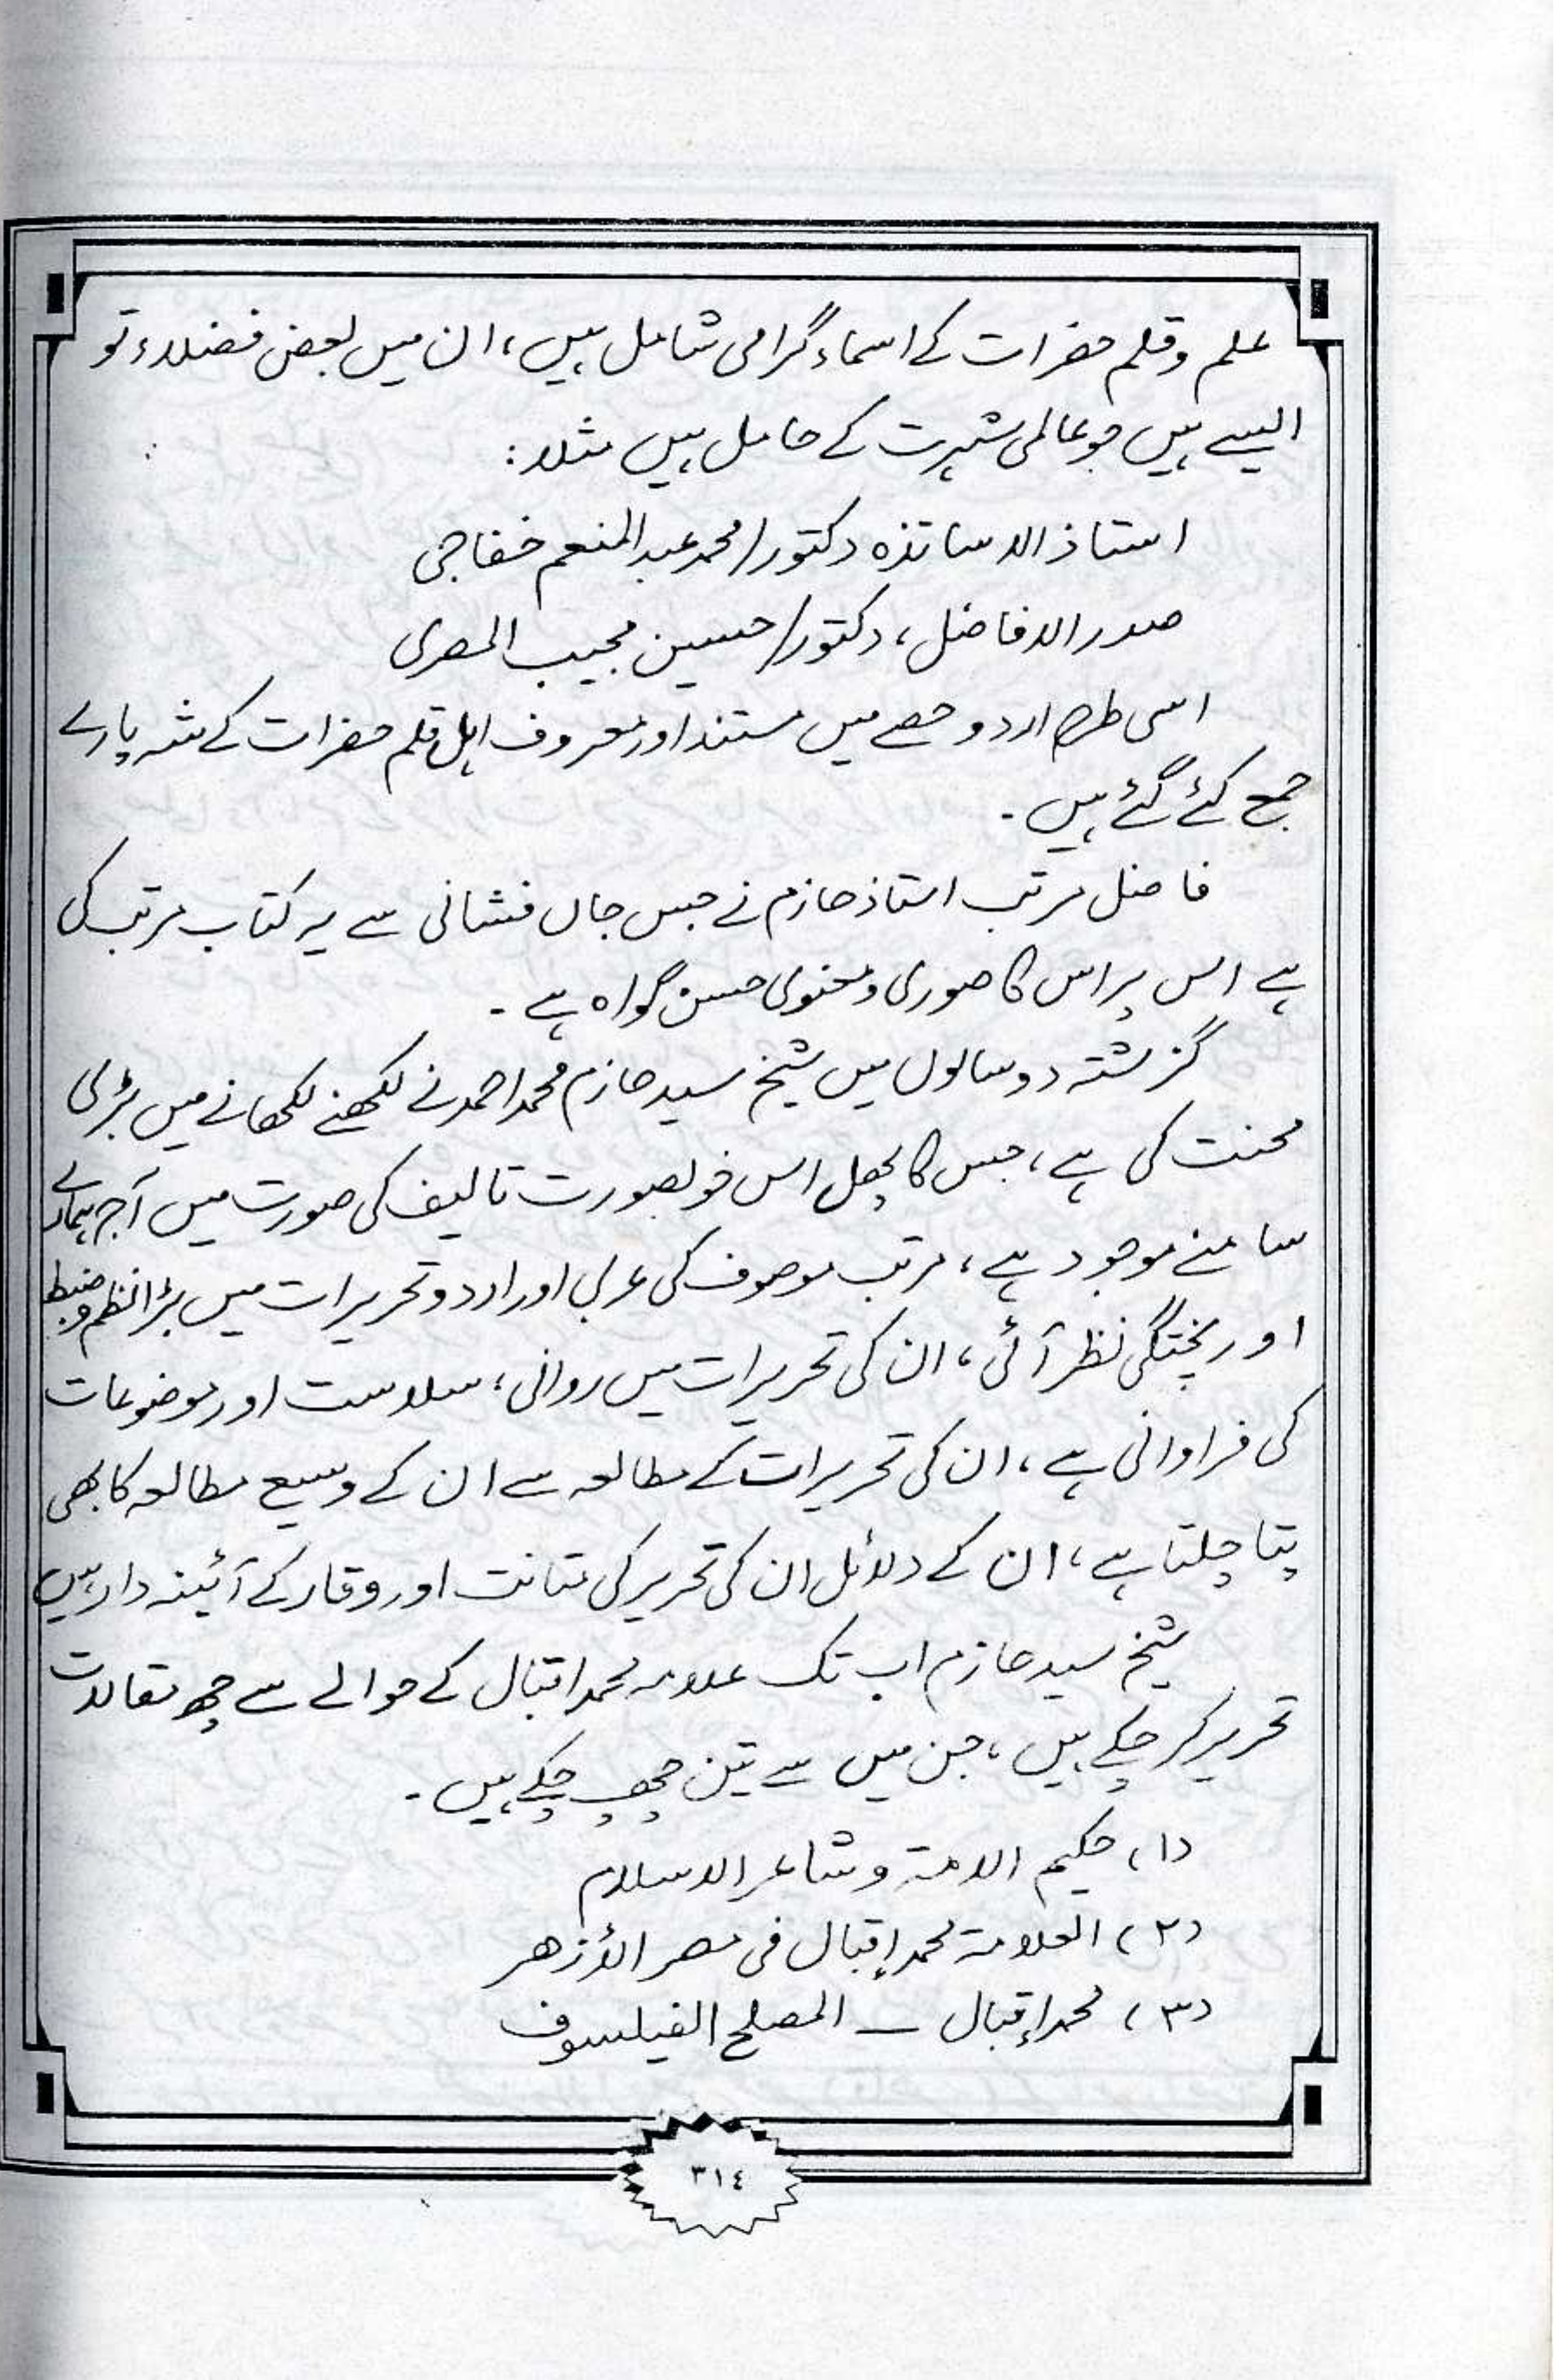 علم وقلم حضرات کے اسماء گرامی شامل ہیں، ان میں بعض فضلاء تو
ایسے ہیں جو عالمی شہرت کے حامل ہیں مثلا:
استاذ الاساتذہ دکتور/محمد عبد المنعم خفاجی
صدر الافاضل، دکتور/حسین مجیب المصری
اسی طرح اردو حصے میں مستند اور معروف اہل قلم حضرات کے شہ پارے
جمع کئے گئے ہیں۔
فاضل مرتب استاذ حازم نے جس جاں فشانی سے یہ کتاب مرتب کی
ہے اس پر اس کا صوری و معنوی حسن گواہ ہے۔
گزشتہ دو سالوں میں شیخ سید حازم محمد احمد نے لکھنے لکھانے میں بڑی
محنت کی ہے، جس کا پھل اس خوبصورت تالیف کی صورت میں آج ہمارے
سامنے موجود ہے، مرتب موصوف کی عربی اور اردو تحریرات میں بڑا نظم و ضبط
اور پختگی نظر آئی، ان کی تحریرات میں روانی، سلاست اور موضوعات
کی فراوانی ہے، ان کی تحریرات کے مطالعہ سے ان کے وسیع مطالعہ کا بھی
پتا چلتا ہے، ان کے دلائل ان کی تحریر کی متانت اور وقار کے آئینہ دار ہیں
شیخ سید حازم اب تک علامہ محمد اقبال کے حوالے سے چھ مقالات
تحریر کر چکے ہیں، جن میں سے تین چھپ چکے ہیں۔
(۱) حکیم الامۃ و شاعر الاسلام
(۲) العلامۃ محمد إقبال فی مصر الأزھر
(۳) محمد إقبال — المصلح الفیلسوف
٣١٤